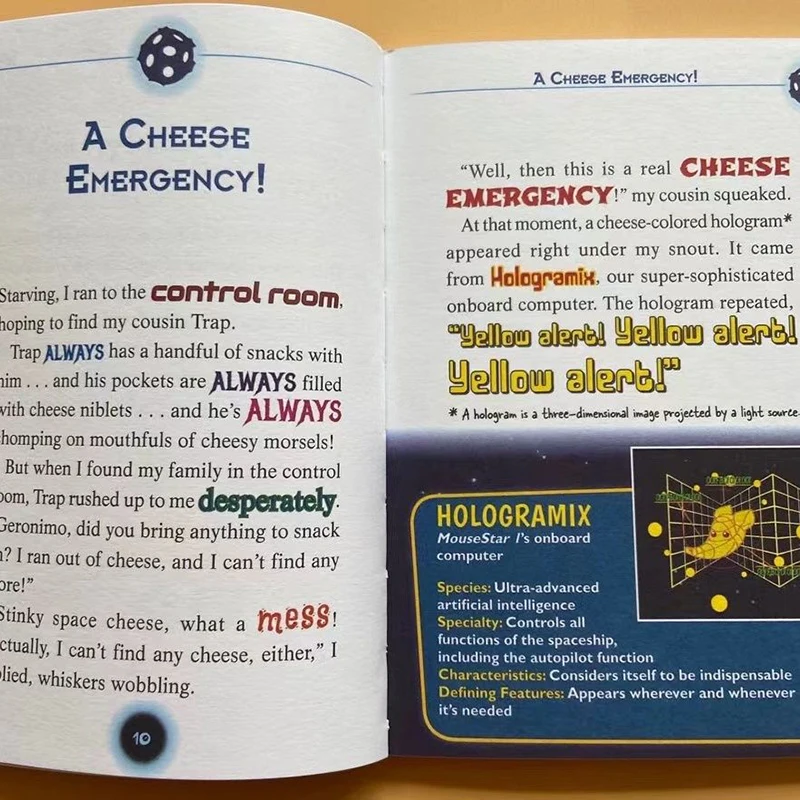 A Cheese
Emergency!
Starving, I ran to the control room,
hoping to find my cousin Trap.
Trap ALWAYS has a handful of snacks with
him . . . and his pockets are ALWAYS filled
with cheese niblets . . . and he's ALWAYS
chomping on mouthfuls of cheesy morsels!
But when I found my family in the control
oom, Trap rushed up to me desperately.
Geronimo, did you bring anything to snack
n? I ran out of cheese, and I can't find any
ore!"
Stinky space cheese, what a mess!
ctually, I can't find any cheese, either," I
plied, whiskers wobbling.
10
A Cheese Emergency!
"Well, then this is a real CHEESE
EMERGENCY!" my cousin squeaked.
At that moment, a cheese-colored hologram*
appeared right under my snout. It came
from Hologramix, our super-sophisticated
onboard computer. The hologram repeated,
"Yellow alert! Yellow alert!
Yellow alert!"
* A hologram is a three-dimensional image projected by a light source.
HOLOGRAMIX
MouseStar 1's onboard
computer
Species: Ultra-advanced
artificial intelligence
Specialty: Controls all
functions of the spaceship,
including the autopilot function
Characteristics: Considers itself to be indispensable
Defining Features: Appears wherever and whenever
it's needed